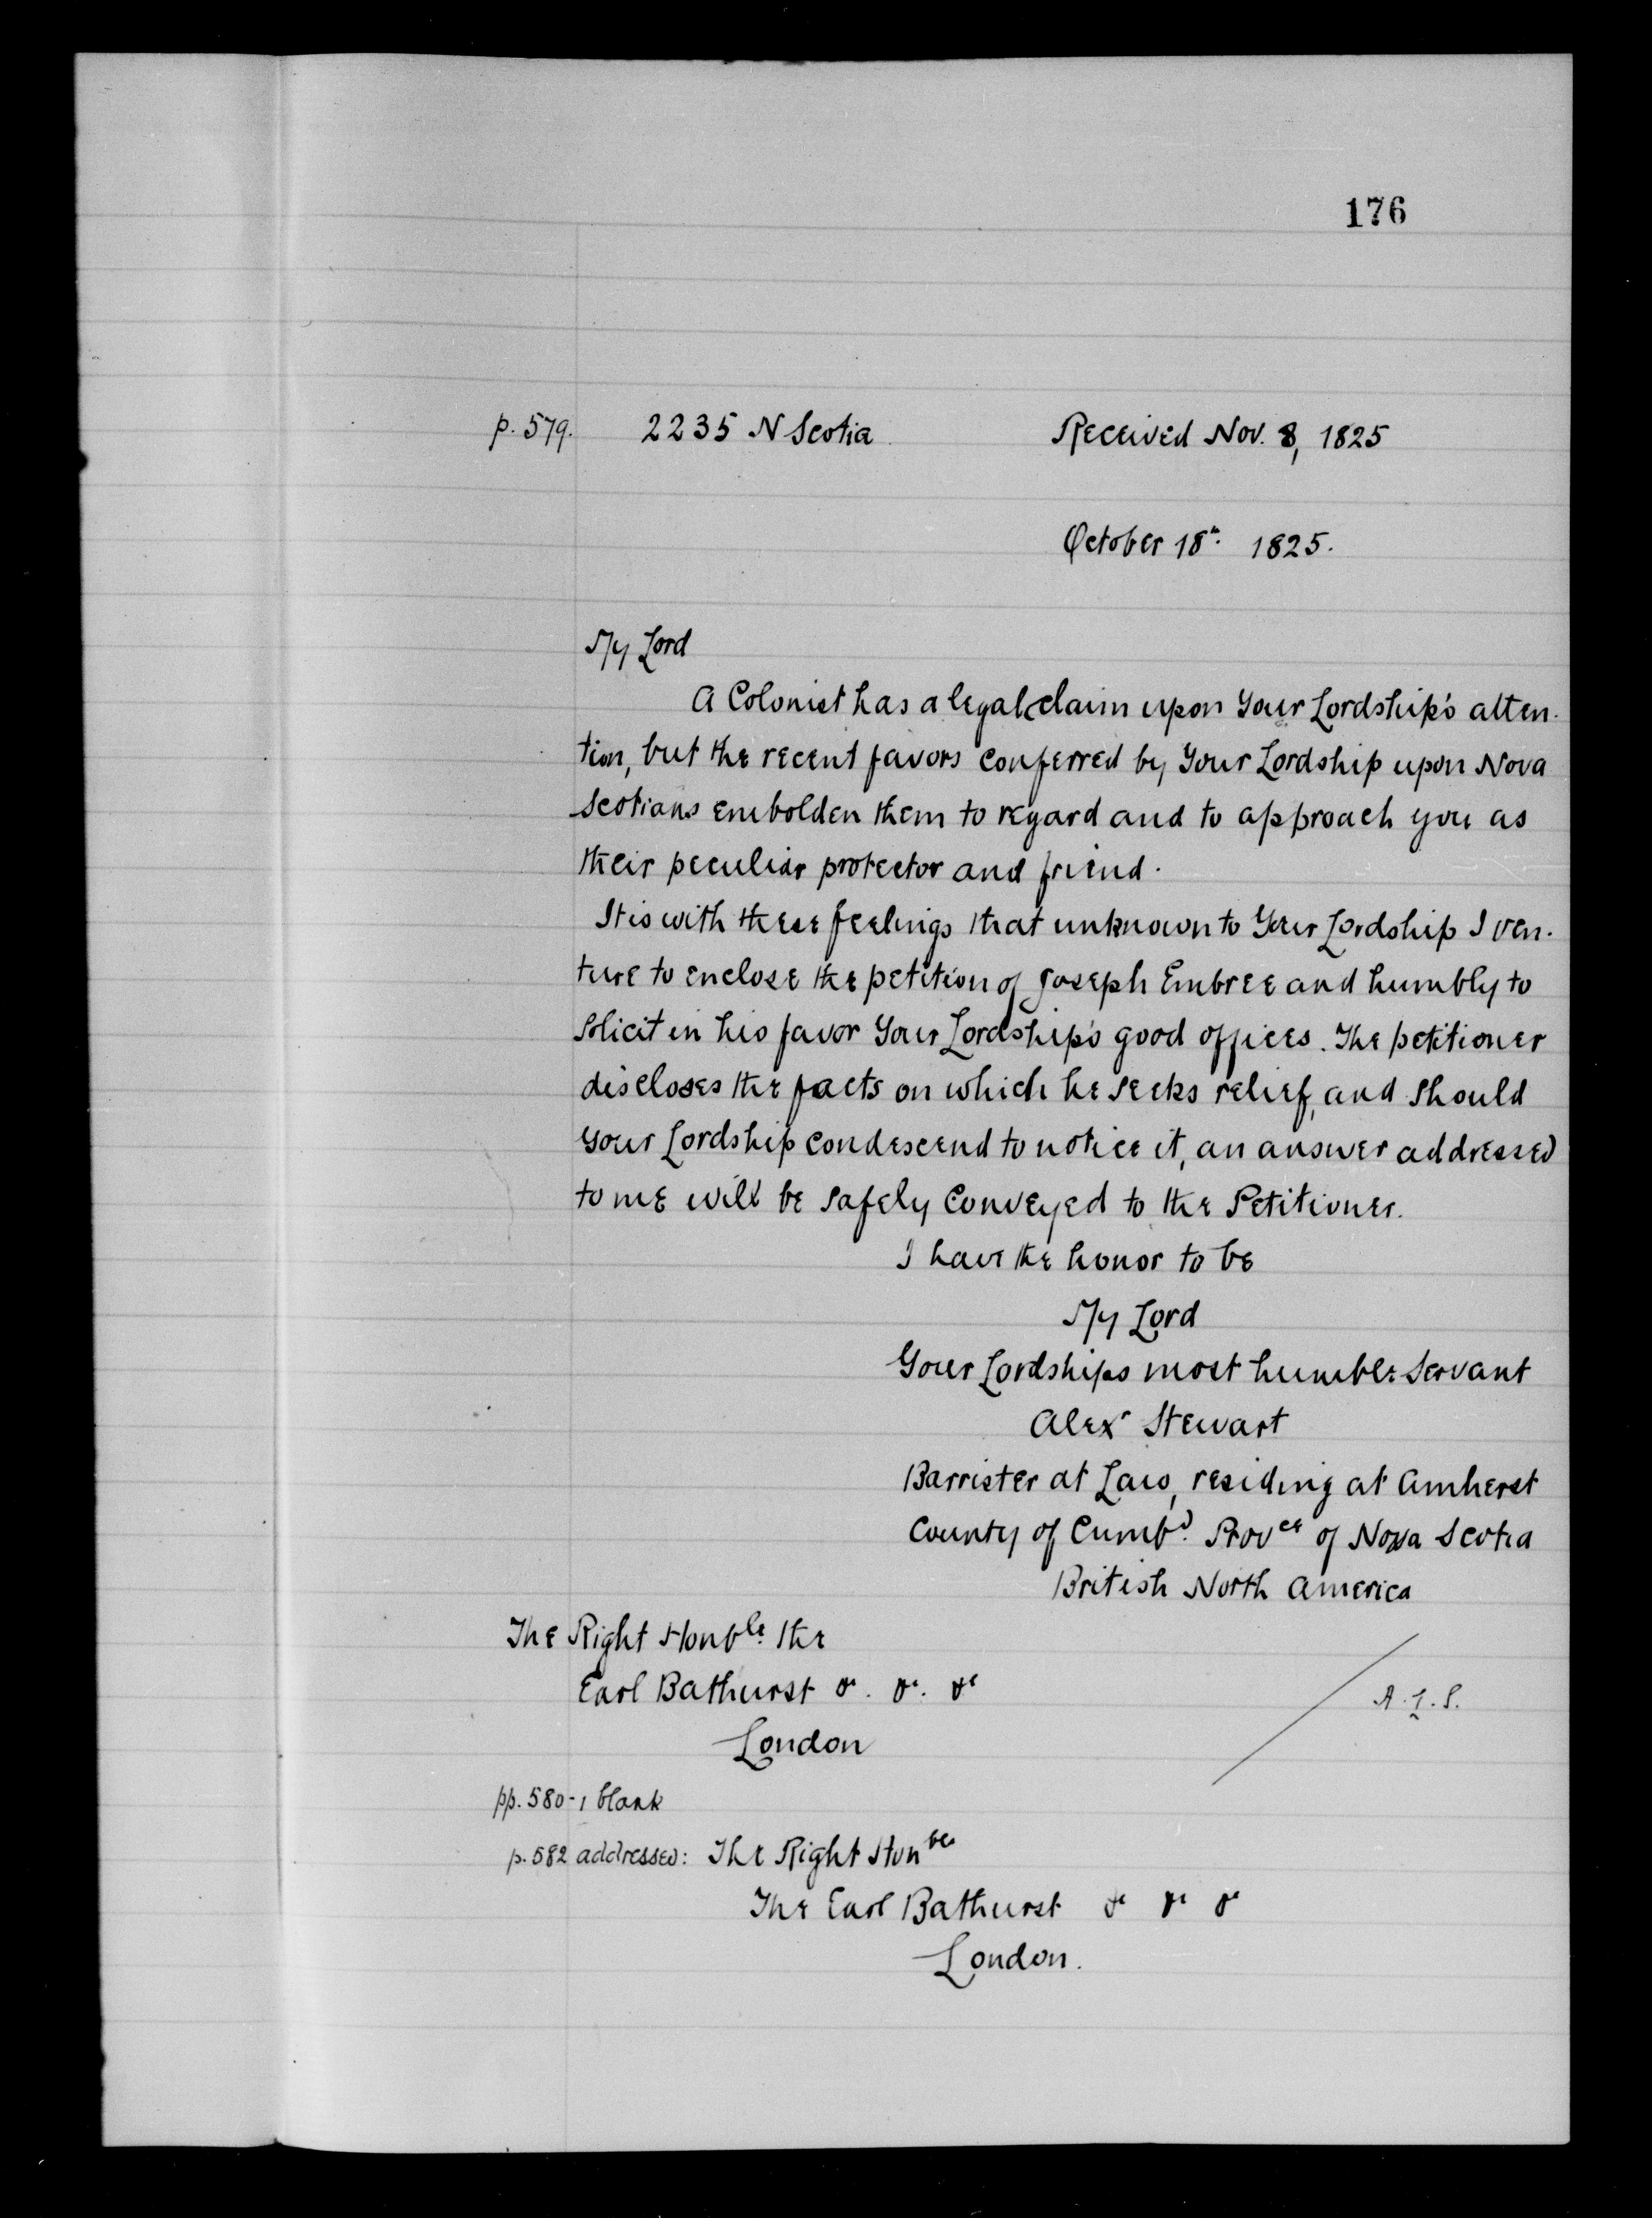 176
p. 579. 2235 N Scotia Received Nov. 8, 1825
October 18th. 1825.
My Lord
A Colonist has a legal claim upon Your Lordship's atten-
tion, but the recent favors conferred by Your Lordship upon Nova
Scotians embolden them to regard and to approach you as
their peculiar protector and friend.
It is with these feelings that unknown to Your Lordship I ven-
ture to enclose the petition of Joseph Embree and humbly to
solicit in his favor Your Lordship's good offices. The petitioner
discloses the facts on which he seeks relief, and should
Your Lordship condescend to notice it, an answer addressed
to me will be safely conveyed to the Petitioner.
I have the honor to be
My Lord
Your Lordships most humble servant
Alexr Stewart
Barrister at Law, residing at Amherst
County of Cumbd. Provce of Nova Scotia
British North America
The Right Honble. the
Earl Bathurst &c. &c. &c
London
A.L.S.
pp. 580-1 blank
p. 582 addressed: The Right Honble
The Earl Bathurst &c &c &c
London.